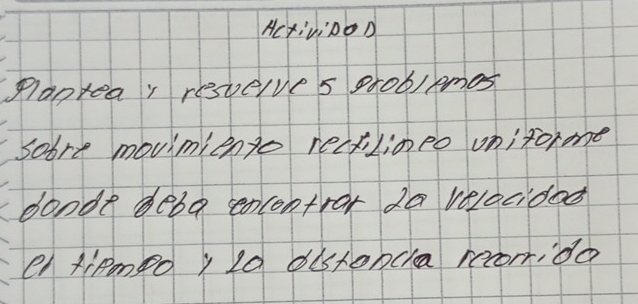 ActiviDaD
Plantea y resuelve 5 problemas
sobre movimiento rectilineo uniforme
donde deba encontrar la velocidad
el tiempo y la distancia recorrida